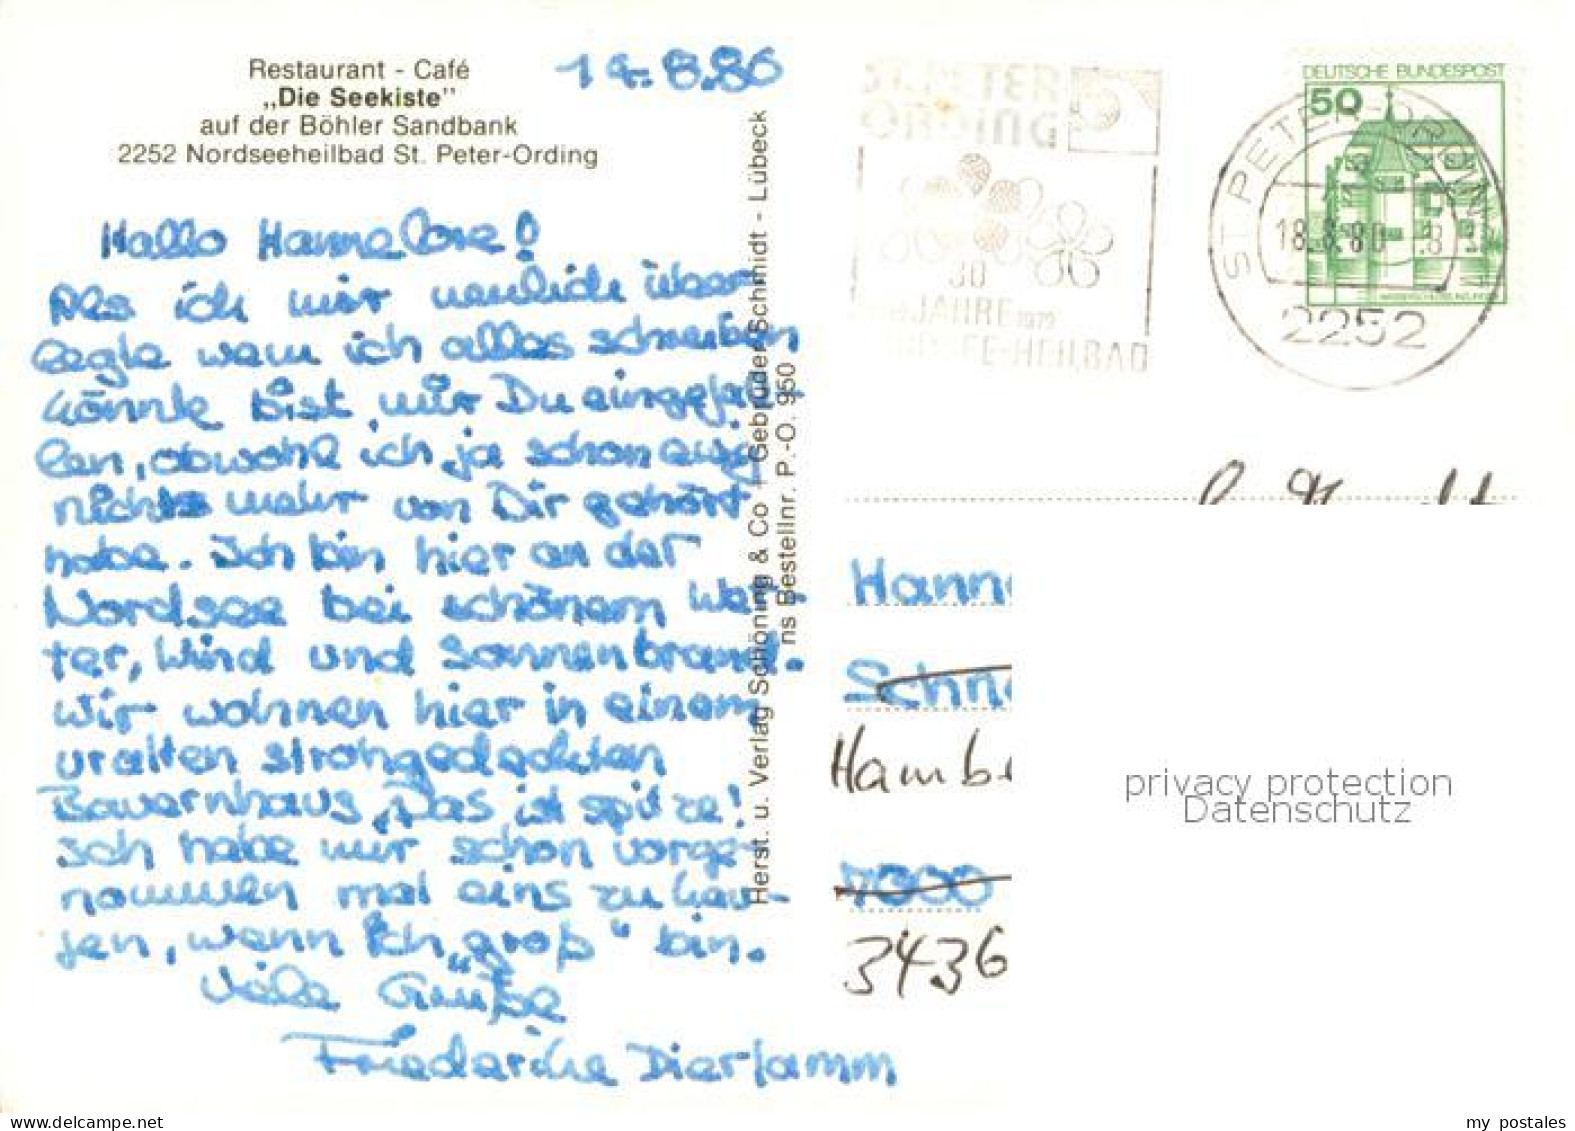 Restaurant - Café
„Die Seekiste"
auf der Böhler Sandbank
2252 Nordseeheilbad St. Peter-Ording
14.8.80
Hallo Hannelore!
Als ich mir neulich über
legte wem ich alles schreiben
könnte bist mir Du eingefal-
len, obwohl ich ja schon ewig
nichts mehr von Dir gehört
habe. Ich bin hier an der
Nordsee bei schönem Wet-
ter, Wind und Sonnenbrand.
Wir wohnen hier in einem
uralten strohgedeckten
Bauernhaus, Das ist spitze!
Ich habe mir schon vorge-
nommen mal eins zu kau-
fen, wenn ich „groß" bin.
Viele Grüße
Friederike Dierlamm
Herst. u. Verlag Schöning & Co + Gebrüder Schmidt - Lübeck
ns Bestellnr. P.-O. 950
ST. PETER
ORDING
30
JAHRE 1979
NORDSEE-HEILBAD
DEUTSCHE BUNDESPOST
50
ST. PETER-ORDING
18.8.80
2252
Hann
Schn
Hamb
7000
3436
privacy protection
Datenschutz
my postales